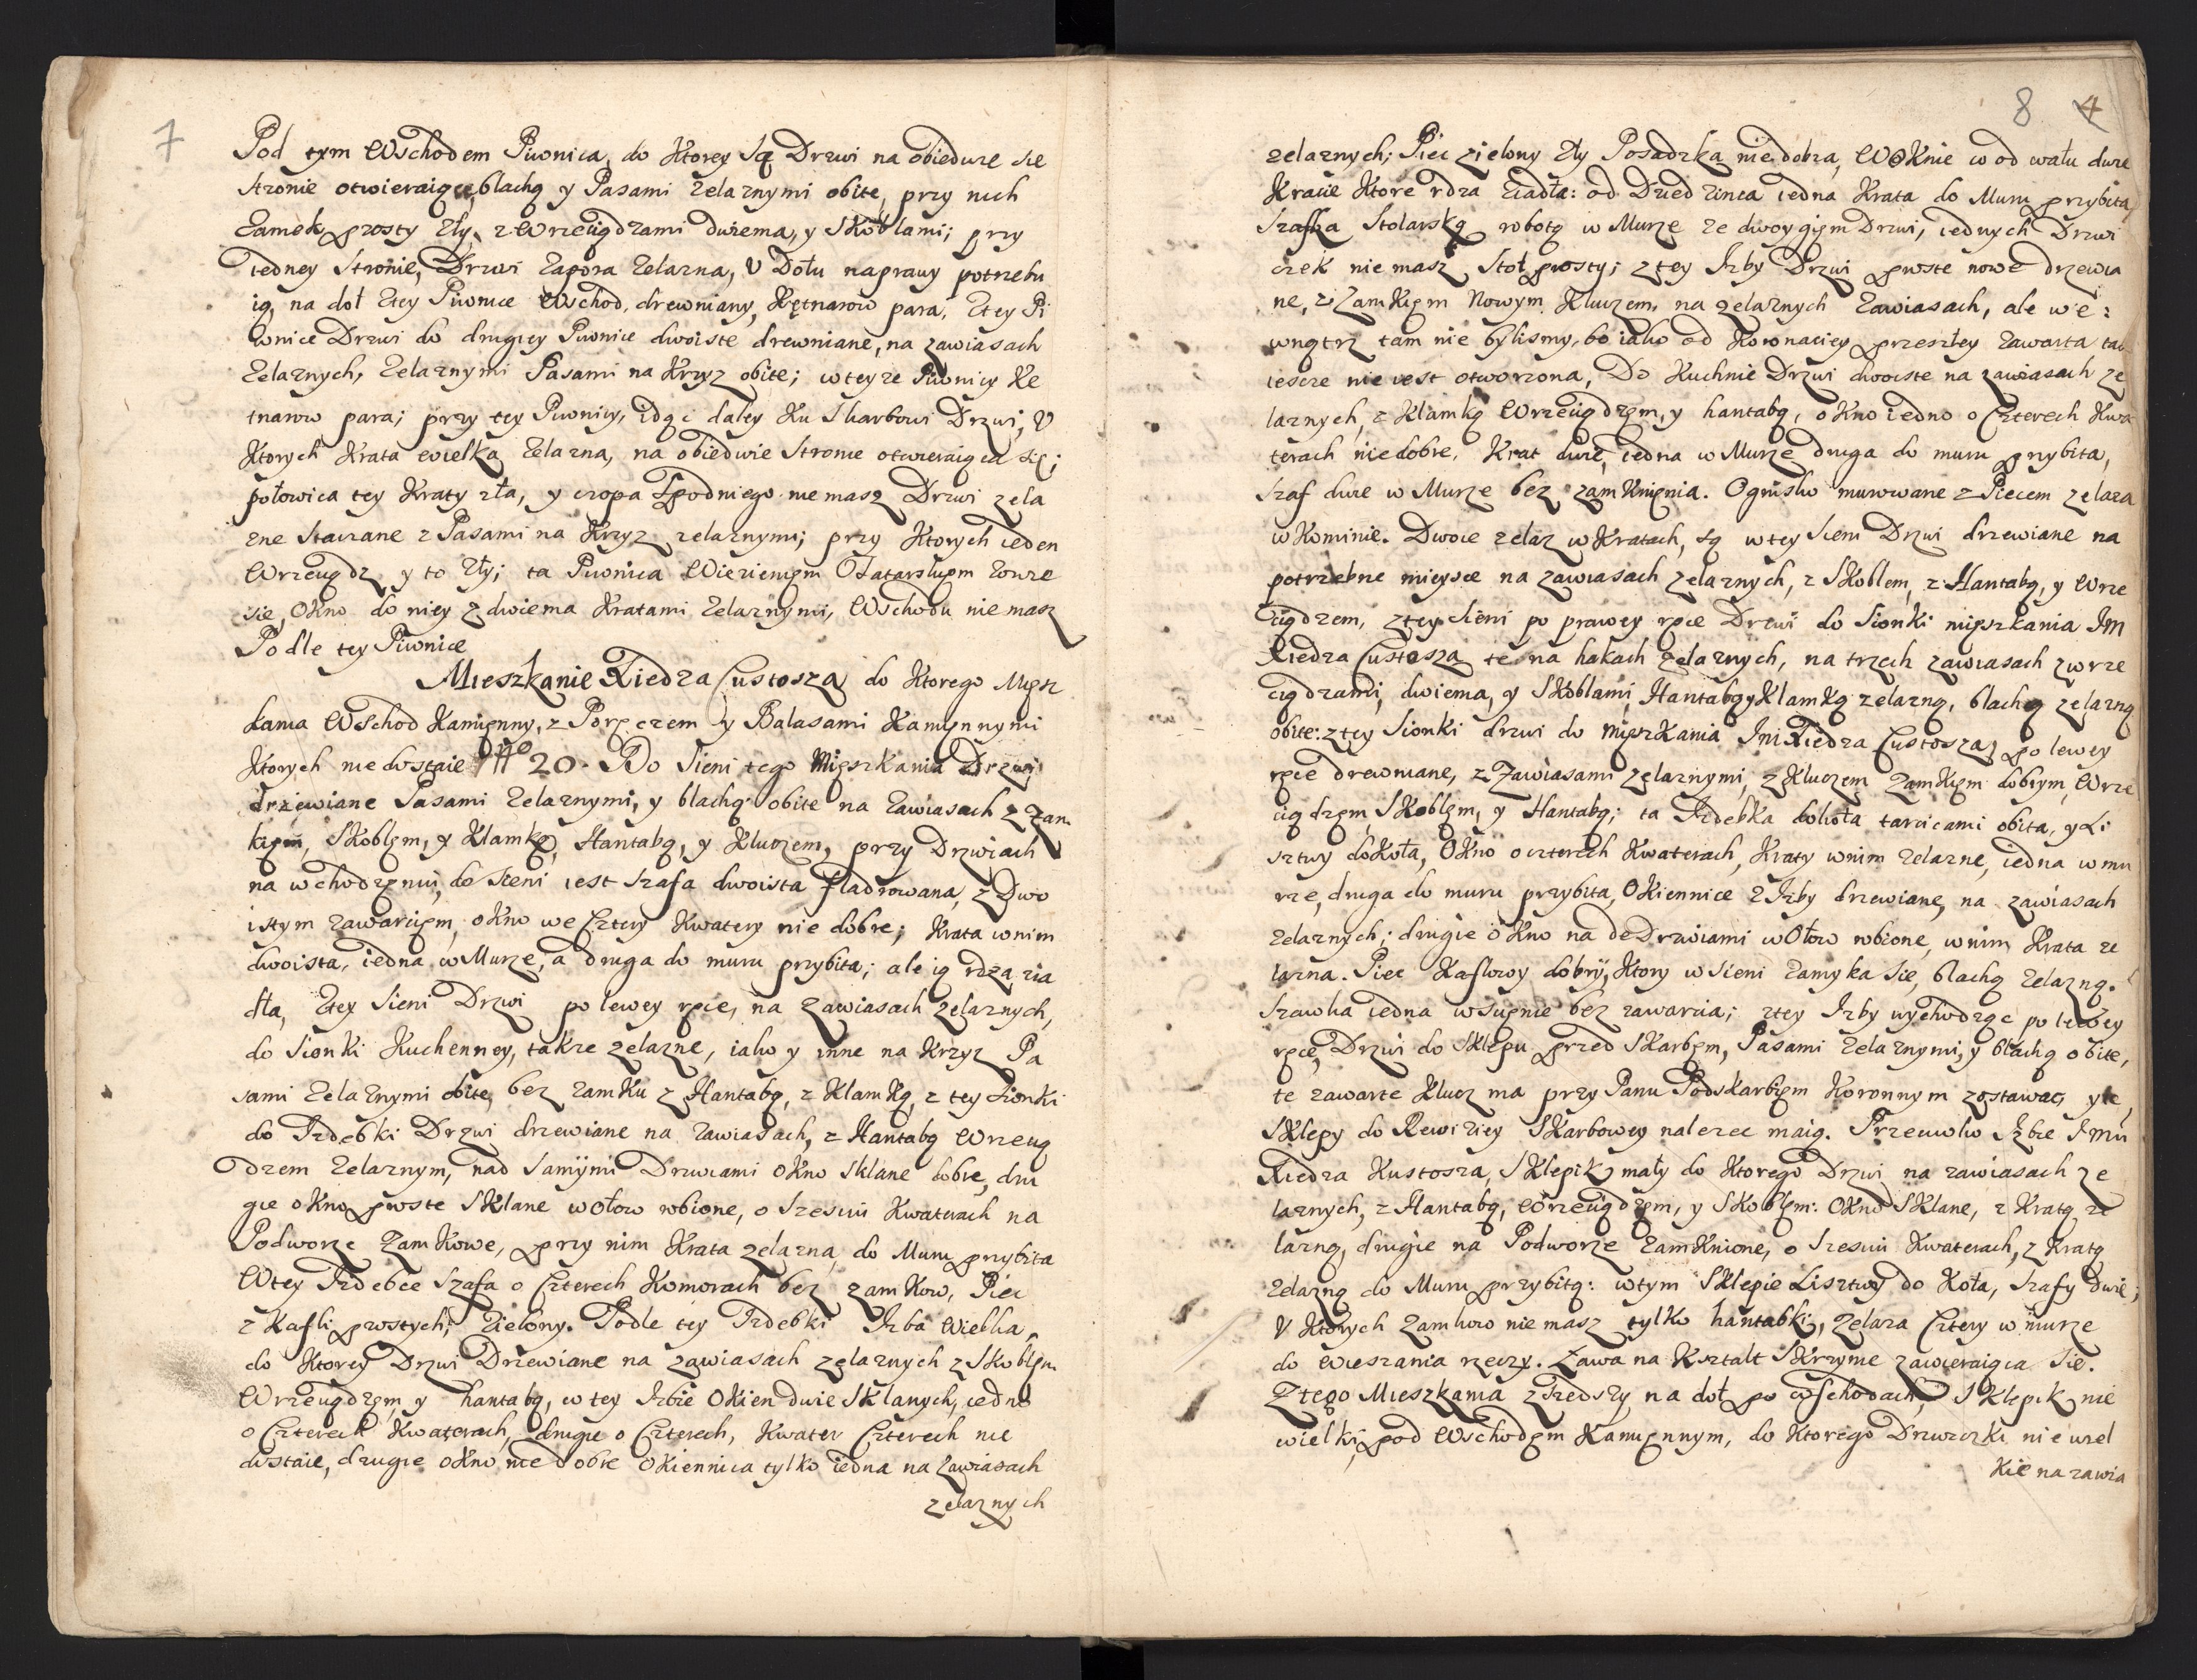 7
Pod tym Wschodem Piwnica, do Ktorey Są Drzwi na obiedwie sie
stronie otwieraiące, blachą y Pasami zelaznymi obite, przy nich
Zamek prosty zły, z Wrzeciądzami dwiema, y Skoblami; przy
iedney Stronie, Drzwi Zapora Zelazna, V Dołu naprawy potrzebu
ią, na doł ztey Piwnice Wschod, drewniany, Kętnarow para. Ztey Pi
wnice Drzwi do drugiey Piwnice dwoiste drewniane, na zawiasach
Zelaznych, Zelaznymi Pasami na Krzyz obite; wteyze Piwnicy Ke
tnarow para; przy tey Piwnicy, idąc daley Ku Skarbowi Drzwi, V
Ktorych Krata wielka Zelazna, na obiedwie Stronie otwieraiąca się;
połowica tey Kraty zła, y czopa Spodniego niemasz Drzwi zela
zne Stawiane z Pasami na Krzyz zelaznymi; przy Ktorych ieden
Wrzeciądz y to zły; ta Piwnica Wiezieniem Otatarskiem zowie
sie, Okno do niey z dwiema Kratami Zelaznymi, Wschodu nie masz
Podle tey Piwnice
Mieszkanie Xiedza Custosza do Ktorego Miesz
kania Wschod Kamienny, z Poręczem y Balasami Kamiennymi
Ktorych nie dostaie No 20. Do Sieni tego Mieszkania Drzwi
drzewiane Pasami Zelaznymi, y blachą obite na Zawiasach z Zam
kiem, Skoblem, y Klamką, Hantabą, y Kluczem, przy Drzwiach
na wchodzeniu, do Sieni iest Szafa dwoista fladrowana, z Dwo
istym zawarciem, okno we Cztery Kwatery nie dobre; Krata wnim
dwoista, iedna w Murze, a druga do muru przybita; ale ią rdza zia
dła, Ztey Sieni Drzwi po lewey ręce, na zawiasach zelaznych,
do Sionki Kuchenney, takze zelazne, iako y inne na Krzyz Pa
sami Zelaznymi obite, bez zamku z Hantabą, z Klamką, z tey Sionki
do Izdebki Drzwi drzewiane na zawiasach, z Hantabą Wrzecią
dzem Zelaznym, nad Samymi Drzwiami okno sklane dobre, dru
gie okno proste Sklane wołow robione, o szesciu Kwaterach na
Podworze Zamkowe, przy nim Krata zelazna, do Muru przybita
Wtey Izdebce Szafa o Czterech Komorach bez zamkow, Piec
z Kafli prostych, Zielony. Podle tey Izdebki Izba Wielka,
do Ktorey Drzwi Drzewiane na zawiasach zelaznych z Skoblem
Wrzeciądzem, y hantabą, w tey Izbie Okien dwie Sklanych, iedno
o Czterech Kwaterach, drugie o Czterech, Kwater Czterech nie
dostaie, drugie okno nie dobre okiennica tylko iedna na zawiasach
zelaznych
8 4
zelaznych; Piec zielony zły Posadzka niedobra, W Oknie w od wału dwie
Kracie Ktore rdza ziadła: od Dziedzinca iedna Krata do Muru przybita,
Szafka Stolarską robotą w Murze ze dwoygiem Drzwi, iednych Drzwi
czek nie masz Stoł prosty; z tey Izby Drzwi proste nowe drzewia
ne, z Zamkiem Nowym Kluczem, na zelaznych Zawiasach, ale we:
wnątrz tam nie bylismy, bo iako od Koronaciey przeszłey zawarta tak
ieszcze nie iest otworzona, Do Kuchnie Drzwi dwoiste na zawiasach ze
laznych, z Klamką Wrzeciądzem, y hantabą, okno iedno o Czterech Kwa
terach niedobre, Krat dwie, iedna w Murze druga do muru przybita,
Szaf dwie w Murze bez zamknienia. Ognisko murowane z Piecem zelaza
w Kominie. Dwoie zelaz w Kratach, są w tey Sieni Drzwi drzewiane na
potrzebne mieysce na zawiasach zelaznych, z Skoblem, z Hantabą, y Wrze
ciądzem, ztey Sieni po prawey ręce Drzwi do Sionki mieszkania Im
Xiedza Custosza te na hakach zelaznych, na trzech zawiasach zwrze
ciądzami, dwiema, y Skoblami, Hantabą y Klamką zelazną, blachą zelazną
obite: ztey Sionki drzwi do mieszkania Im Xiedza Custosza, po lewey
ręce drewniane, z Zawiasami zelaznymi, z Kluczem Zamkiem dobrym, Wrze
ciądzem, Skoblem, y Hantabą; ta Izdebka dokoła tarcicami obita, y Li
sztwy dokoła, Okno o czterech Kwaterach, Kraty wnim zelazne, iedna w mu
rze, druga do muru przybita, Okiennice z Izby drzewiane, na zawiasach
zelaznych; drugie okno na de Drzwiami w Ołow robione, wnim Krata ze
lazna. Piec Kaflowy dobry, Ktory w Sieni zamyka sie, blachą zelazną.
Szawka iedna wscienie bez zawarcia; ztey Izby wychodząc po lewey
ręce, Drzwi do Sklepu przed Skarbem, Pasami Zelaznymi, y blachą obite,
te zawarte Klucz ma przy Panu Podskarbiem Koronnym zostawac, y te
Sklepy do Rewiziey Skarbowey nalezec maią. Przeciwko Izbie Imci
Xiedza Kustosza, Sklepik mały do Ktorego Drzwi na zawiasach ze
laznych, z Hantabą, Wrzeciądzem, y Skoblem: Okno Sklane, z Kratą ze
lazną, drugie na Podworze Zamknione, o szesciu Kwaterach, z Kratą
zelazną do Muru przybitą: wtym Sklepie Lisztwy do Koła, Szafy dwie;
V Ktorych Zamkow nie masz tylko hantabki, Zelaza Cztery w murze
do wieszania rzeczy. Ława na Kształt Skrzynie zawieraiąca Sie.
Z tego Mieszkania zszedszy na doł po wschodach, Sklepik nie
wielki, pod Wschodem Kamiennym, do Ktorego Drzwiczki nie wiel
kie na zawia